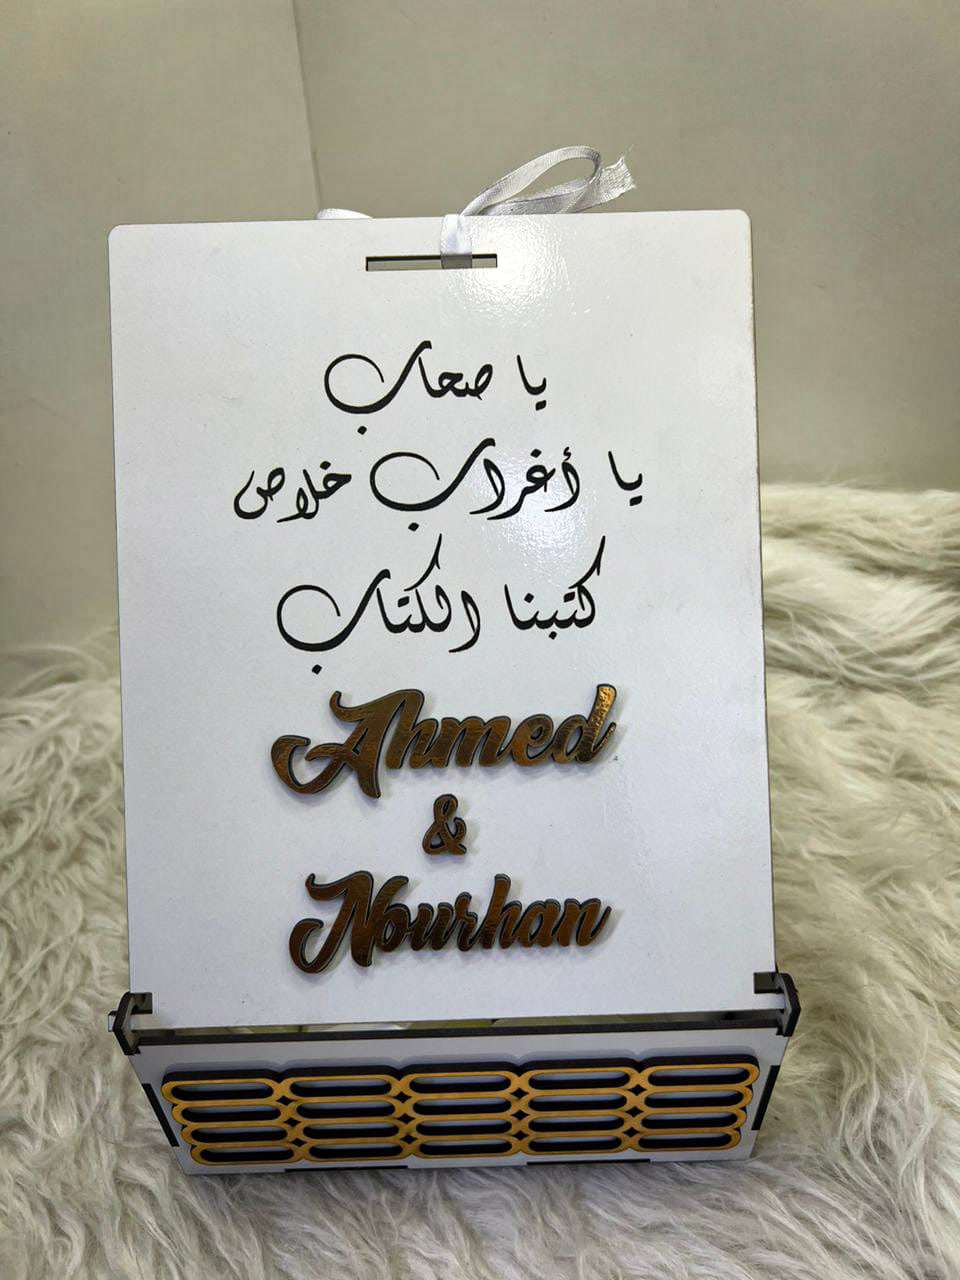 يا صحاب
يا أغراب خلاص
كتبنا الكتاب
Ahmed
&
Nourhan